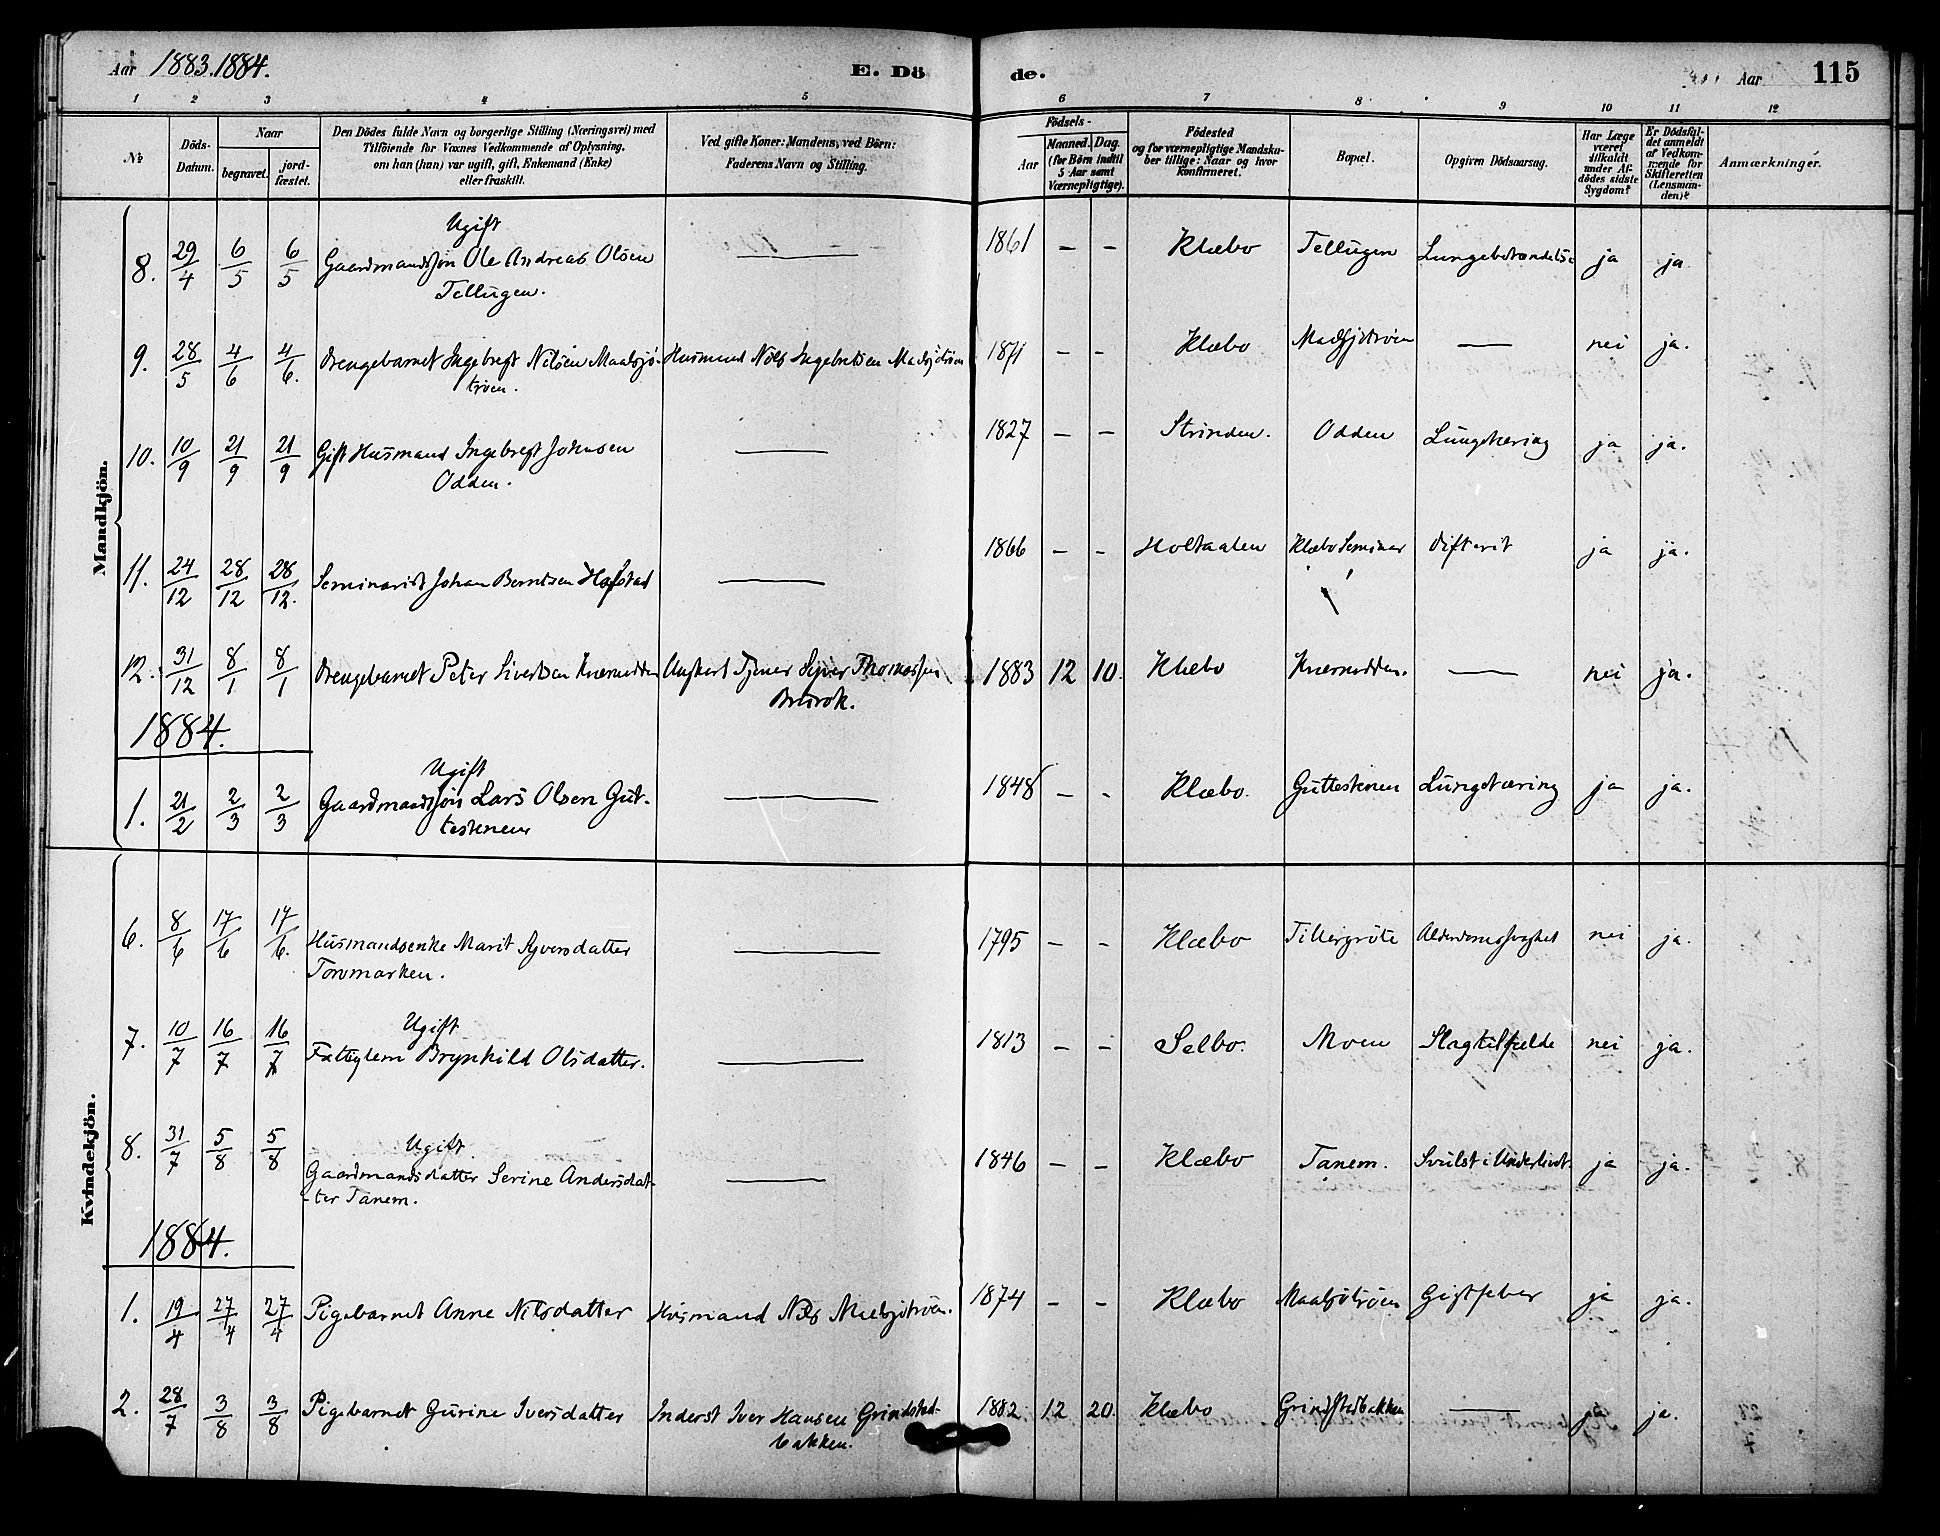 Aar 1883.1884.
E. Dö
de.
Aar
115
1 2 3 4 5 6 7 8 9 10 11 12
№
Döds-
Datum.
Naar
begravet.
jord-
fæstet.
Den Dödes fulde Navn og borgerlige Stilling (Næringsvei) med
Tilföiende for Voxnes Vedkommende af Oplysning,
om han (hun) var ugift, gift, Enkemand (Enke)
eller fraskilt.
Ved gifte Koner: Mandens, ved Börn:
Faderens Navn og Stilling.
Födsels-
Aar
Maaned. Dag.
(for Börn indtil
5 Aar samt
Værnepligtige).
Födested
og for værnepligtige Mandska-
ber tillige: Naar og hvor
konfirmeret.
Bopæl.
Opgiven Dödsaarsag.
Har Læge
været
tilkaldt
under Af-
dödes sidste
Sygdom?
Er Dödsfal-
det anmeldt
af Vedkom-
mende for
Skifteretten
(Lensman-
den)?
Anmærkninger.
Mandkjön.
Ugift
8. 29/4 6/5 6/5 Gaardmandssön Ole Andreas Olsen — 1861 – – Klæbo Tellugen Lungebetændelse ja ja
Tellugen.
9. 28/5 4/6 4/6. Drengebarnet Ingebrigt Nilsen Maalsjö- Husmand Nils Ingebritsen Maalsjötrøen 1871 – – Klæbo — nei ja.
trøen.
10. 10/9 21/9 21/9 Gift Husmand Ingebrigt Johnsen — 1827 – – Strinden. Odden Lungetæring ja ja.
Odden.
11. 24/12 28/12 28/12. Seminarist Johan Berntsen Hofstad — 1866 – – Holtaalen Klæbo Seminar difterit ja ja.
12. 31/12 8/1 8/1 Drengebarnet Peter Sivertsen Kværnødden Ungkarl Tjener Syver Thomassen 1883 12 10. Klæbo Kværnødden. — nei ja.
Brurok.
1884.
Ugift
1. 21/2 2/3 2/3 Gaardmandssön Lars Olsen Gut- — 1848 – – Klæbo. Guttestenen Lungetæring ja ja.
testenen
Kvindekjön.
6. 8/6 17/6 17/6. Husmandsenke Marit Syversdatter — 1795 – – Klæbo Tillergrøte Alderdomssvaghet nei ja.
Torvmarken.
Ugift
7. 10/7 16/7 16/7 Fattiglem Brynhild Olsdatter. — 1813 – – Selbo. Moen Slagtilfælde nei ja.
Ugift
8. 31/7 5/8 5/8 Gaardmandsdatter Serine Andersdat- — 1846 – – Klæbo Tanem. Svulst i Underlivet. ja ja.
-ter Tanem.
1884.
1. 19/4 27/4 27/4 Pigebarnet Anne Nilsdatter Husmand Nils Maalsjötrøen. 1874 – – Klæbo Maalsjötrøen Gigtfeber ja ja.
2. 28/7 3/8 3/8 Pigebarnet Gurine Iversdatter Inderst Iver Hansen Grindstad- 1882 12 20. Klæbo Grindstadbakken — ja ja.
bakken.